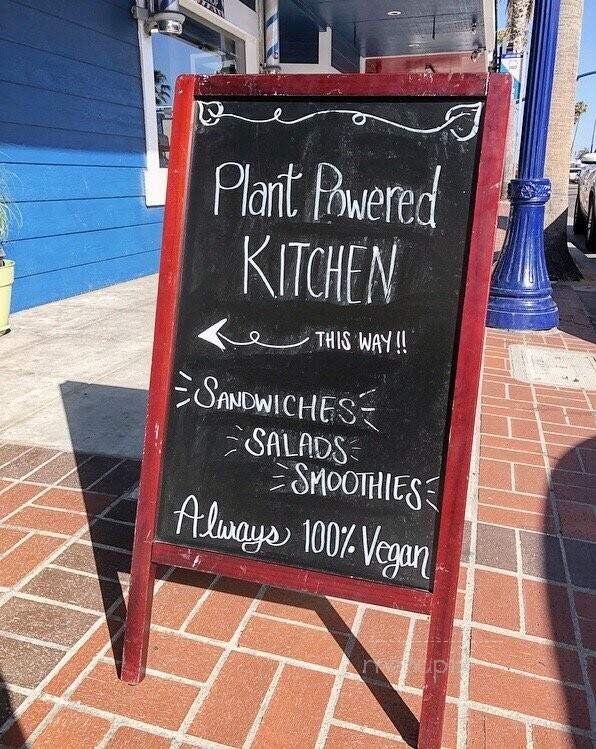 Plant Powered
KITCHEN
THIS WAY!!
SANDWICHES
SALADS
SMOOTHIES
Always 100% Vegan